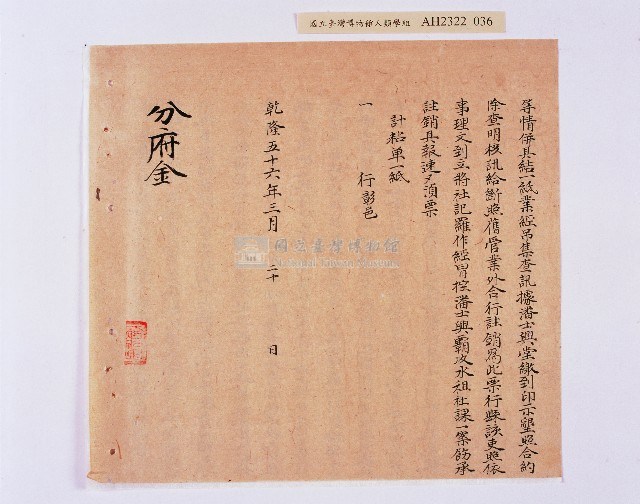 國立臺灣博物館人類學組 AH2322 036
等情併具結一紙業經吊集查訊據潘士興堂繳到印示墾照合約
除查明核訊給斷照舊管業外合行註銷為此票行縣該吏照依
事理文到立將社記羅作經冒控潘士興霸收水租社課一案飭承
註銷具報速々湏票
計粘单一紙
一 行彰邑
乾隆五十六年三月 二十 日
分府金
國立臺灣博物館
National Taiwan Museum